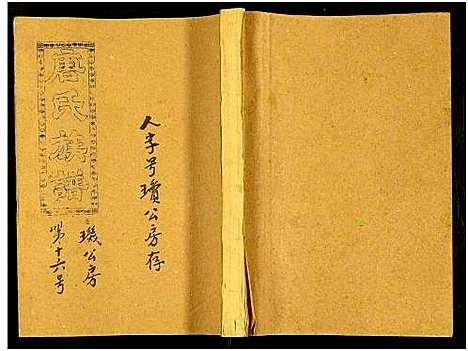 唐氏族譜
人字号瓊公房存
璣公房
第十六号